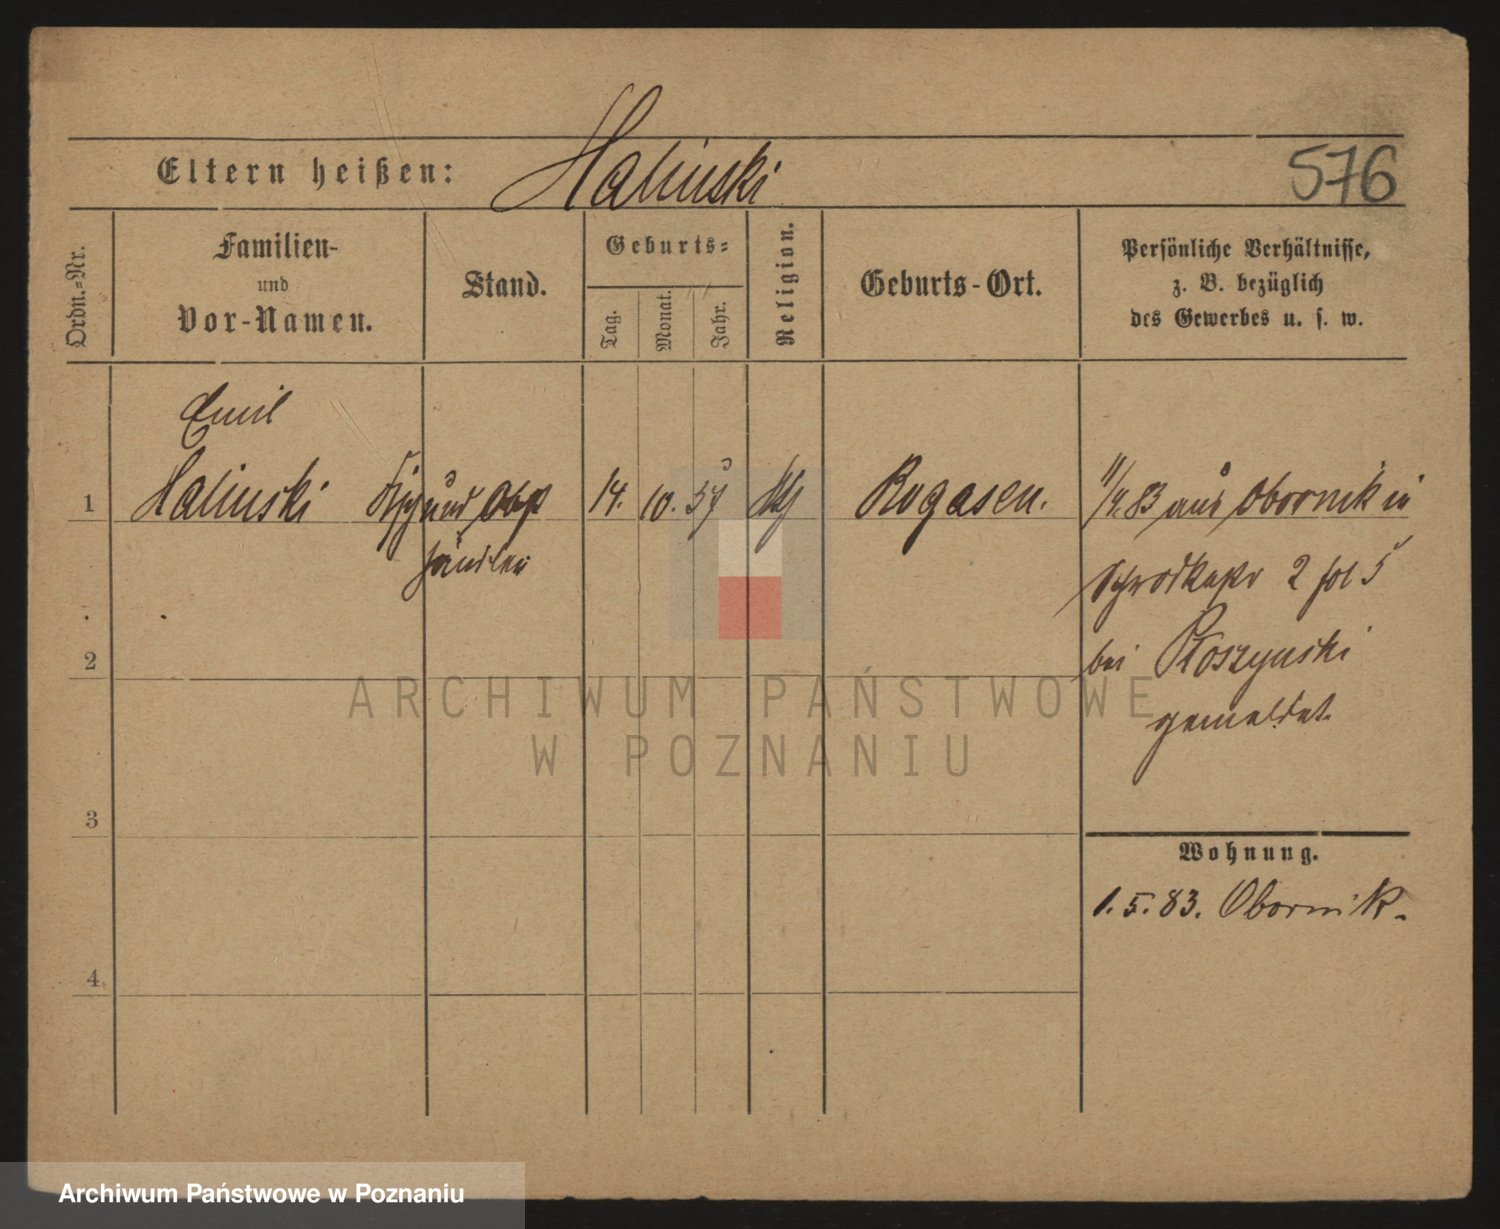 Eltern heißen: Halinski 576
Ordn.-Nr.
Familien-
und
Vor-Namen.
Stand.
Geburts-
Tag.
Monat.
Jahr.
Religion.
Geburts-Ort.
Persönliche Verhältnisse,
z. B. bezüglich
des Gewerbes u. s. w.
Emil
1 Halinski und Obst 14. 10. 57 Rogasen. 83 aus Obornik in
händler
2 fol 5
2
bei Koszynski
gemeldet.
3
Wohnung.
1. 5. 83. Obornik.
4
ARCHIWUM PAŃSTWOWE
W POZNANIU
Archiwum Państwowe w Poznaniu